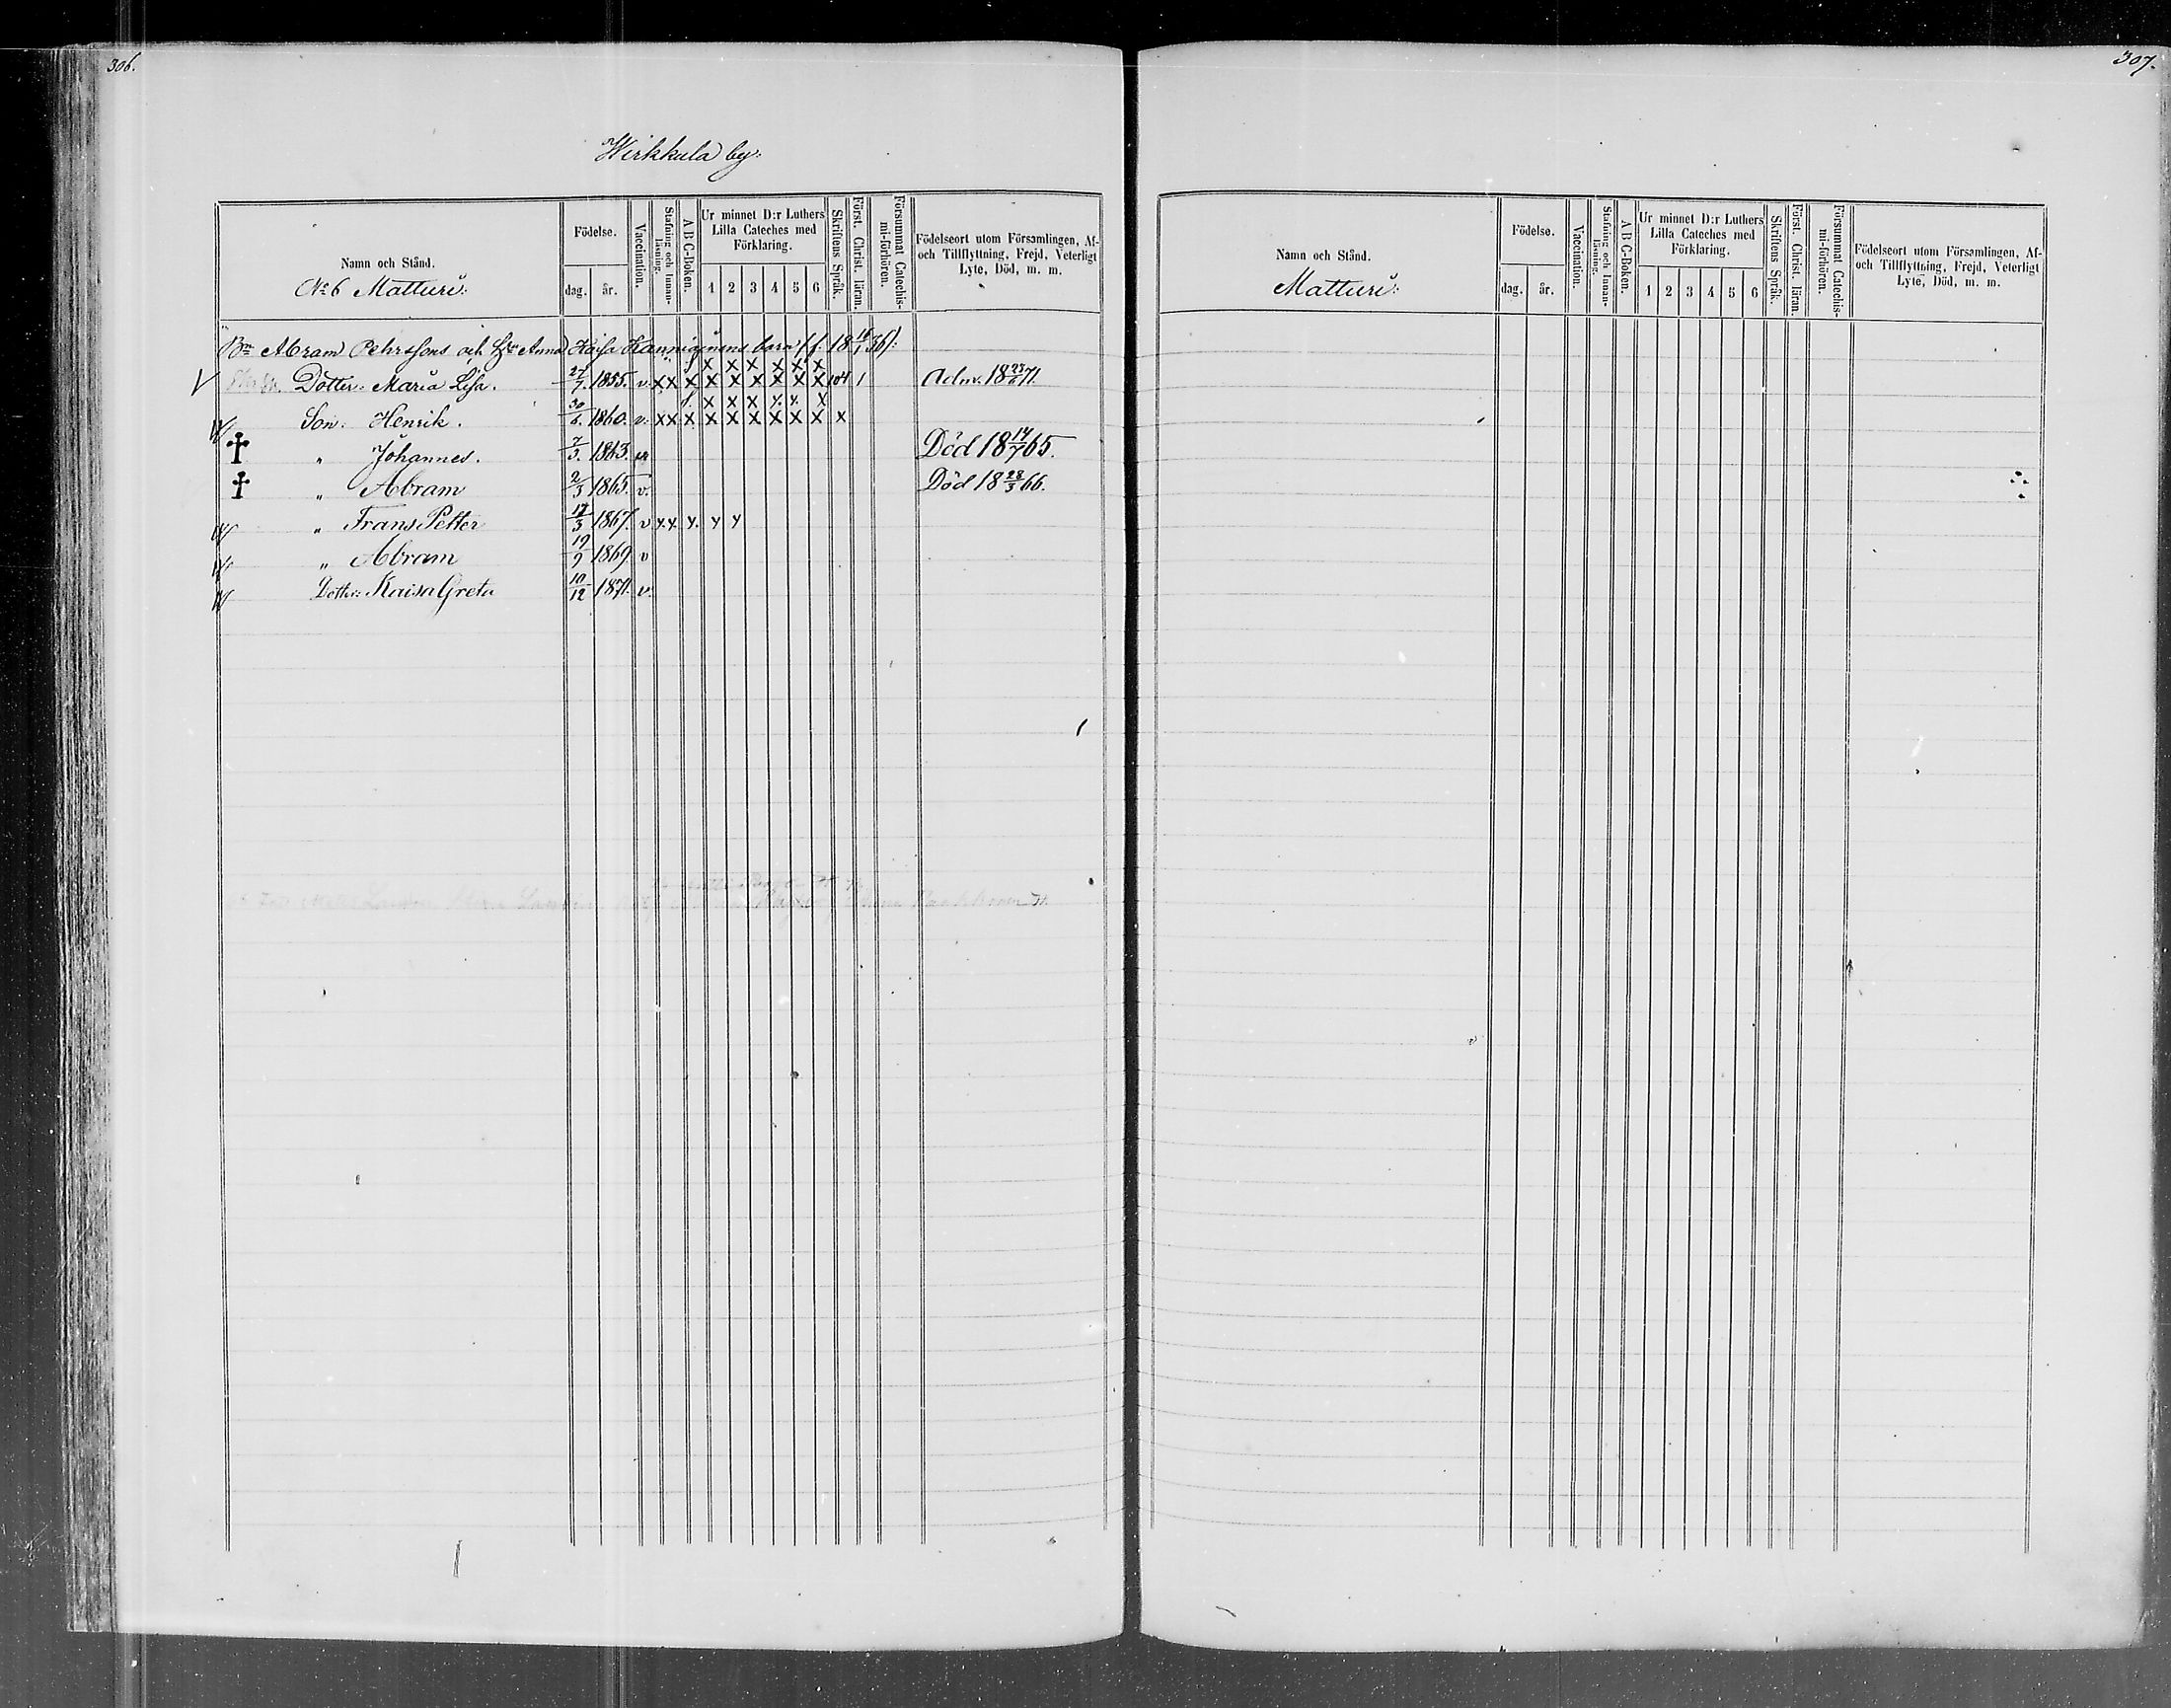 306.
Wirkkula by:
Namn och Stånd.
No 6 Matturi:
Födelse.
dag. år.
Vaccination.
Stafning och Innanläsning.
A B C-Boken.
Ur minnet D:r Luthers Lilla Cateches med Förklaring.
1 2 3 4 5 6
Skriftens Språk.
Först. Christ. läran.
Försummat Catechismi-förhören.
Födelseort utom Församlingen, Af-
och Tillflyttning, Frejd, Veterligt
Lyte, Död, m. m.
Bn Abram Pehrssons och Anna Kaisa barn
Dotter: Maria Lisa. 27/7 1855. v. x x x x x x x x x 104 1 Adm. 18 71.
Son: Henrik. 30/6. 1860. v. x x x x x x x x x x
" Johannes. 7/3. 1863. Död 18 14/7 65.
" Abram 2/3 1865. v. Död 18 28/3 66.
" Frans Petter 17/3 1867. v x x x. x x
" Abram 19/9 1869 v
Dotter: Kaisa Greta 10/12 1871. v.
307.
Namn och Stånd.
Matturi:
Födelse.
dag. år.
Vaccination.
Stafning och Innanläsning.
A B C-Boken.
Ur minnet D:r Luthers Lilla Cateches med Förklaring.
1 2 3 4 5 6
Skriftens Språk.
Först. Christ. läran.
Försummat Catechismi-förhören.
Födelseort utom Församlingen, Af-
och Tillflyttning, Frejd, Veterligt
Lyte, Död, m. m.